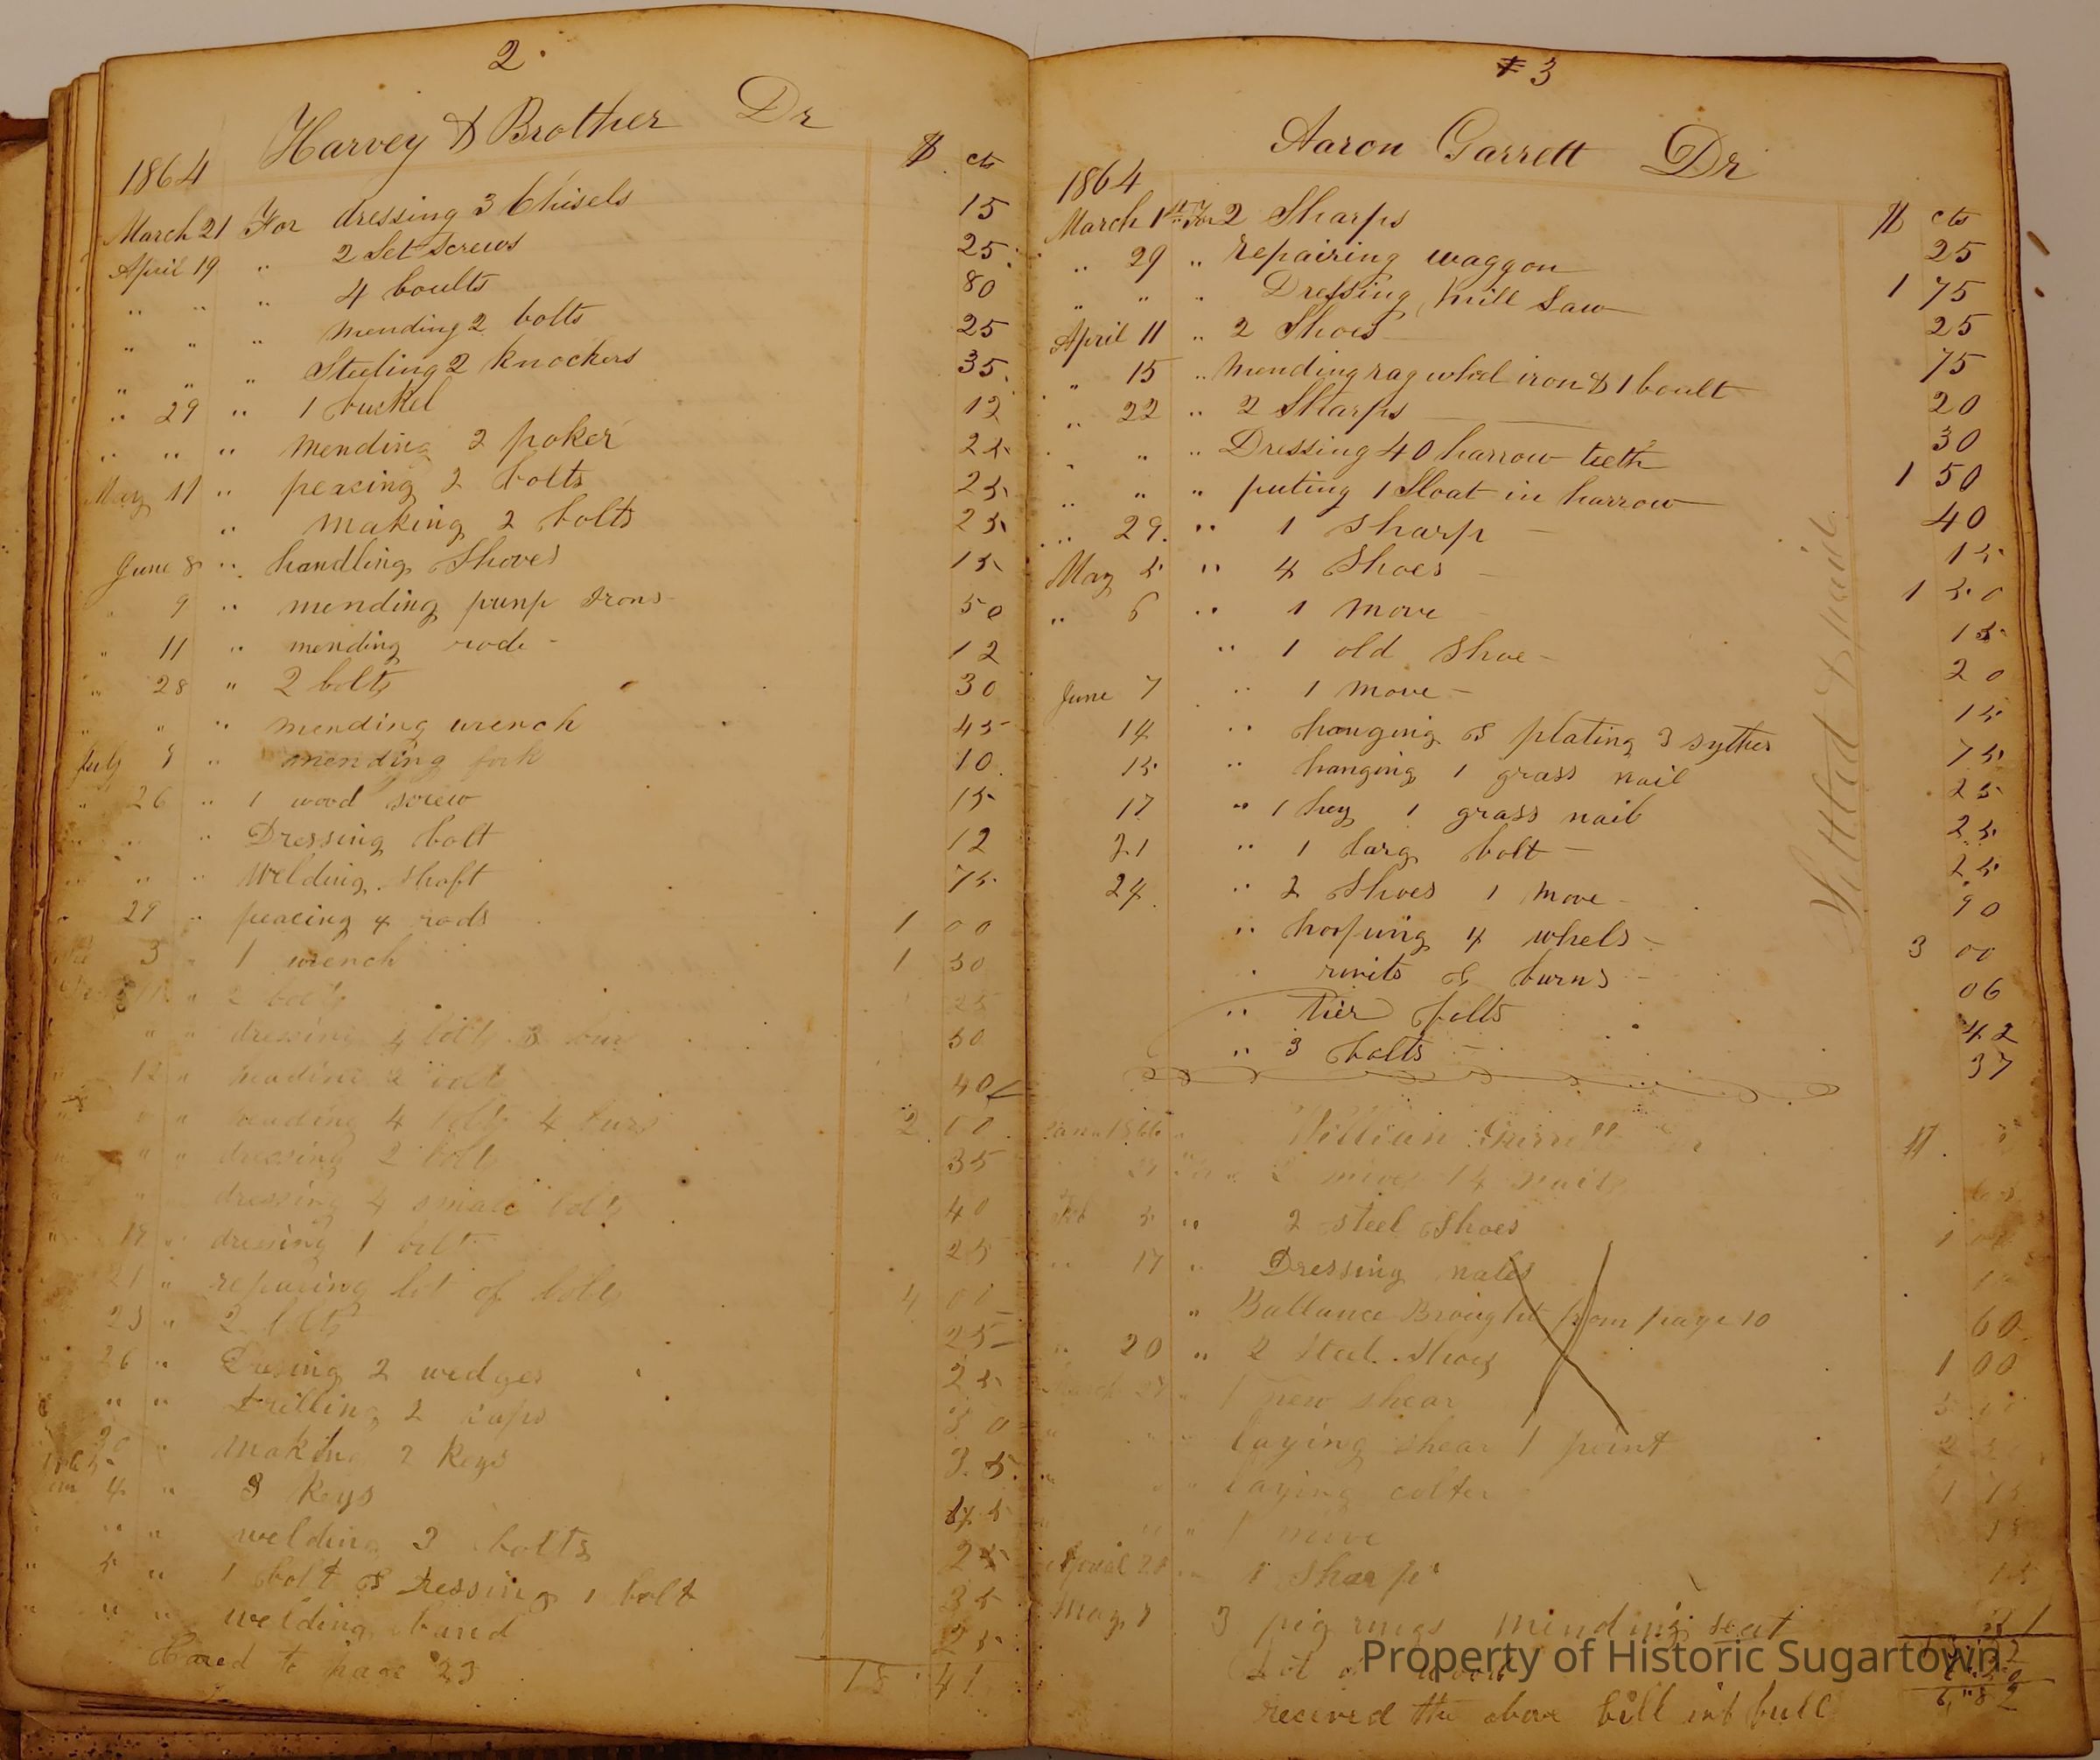 2
Harvey & Brother Dr
1864 $ cts
March 21 For dressing 3 Chisels 15
April 19 " 2 Set Screws 25
" " " 4 boults 80
" " " mending 2 bolts 25
" " " Steeling 2 knockers 35
" 29 " 1 12
" " " mending 2 poker 25
May 11 " peacing 2 bolts 25
" making 2 bolts 25
June 8 " handling Shoves 15
" 9 " mending pump Irons 50
" 11 " mending rode 12
" 28 " 2 bolts 30
" " " mending wrench 45
July 5 " mending fork 10
" 26 " 1 wood screw 15
" " " Dressing bolt 12
" " " Welding shaft 75
" 29 " peacing 4 rods 1 00
3 " 1 wrench 1 50
" 2 bolts 25
" " dressing 4 bolts 50
" 12 " 2 bolts 40
" " " 4 bolts 4 burs 2 00
" " " dressing 2 bolts 35
" dressing 4 small bolts 40
" 19 " dressing 1 bolt 25
21 " reparing lot of bolts 4 00
23 " 2 bolts 25
26 " Dresing 2 wedges 25
" " Drilling 2 caps 50
30 " Making 2 Keys 35
1865
4 " 3 Keys
" " welding 2 bolts 25
" 5 " 1 bolt & Dressing 1 bolt 35
" " " welding band 25
Cared to page 23 18 41
3
Aaron Garrett Dr
1864 $ cts
March 1st For 2 Sharps 25
" 29 " repairing waggon 1 75
" " " Dressing mill Saw 25
April 11 " 2 Shoes 75
" 15 " Mending rag wheel iron & 1 boult 20
" 22 " 2 Sharps 30
" " " Dressing 40 harrow teeth 1 50
" " " puting 1 Sloat in harrow 40
" 29 " 1 Sharp 15
May 5 " 4 Shoes 1 50
" 6 " 1 move 15
" 1 old Shoe 20
June 7 " 1 move 15
14 " hanging & plating 3 sythes 75
15 " hanging 1 grass nail 25
17 " 1 key 1 grass nail 25
21 " 1 larg bolt 25
24 " 2 Shoes 1 move 90
" hooping 4 whels 3 00
" rivits & burns 06
" tier bolts 42
" 3 bolts 37
Settled & paid
1866 William
14 nails
Feb 5 " 2 steel Shoes 1
" 17 " Dressing
" Ballance Brought from page 10 60
" 20 " 2 Steel Shoes 1 00
March " 1 new shear
" " " laying shear 1 point 2
" " laying colter 1 15
" " 1 move 15
April " 1 Sharp 15
May 7 3 pig rings mending seat
Lot of
recived the above bill in full
Property of Historic Sugartown